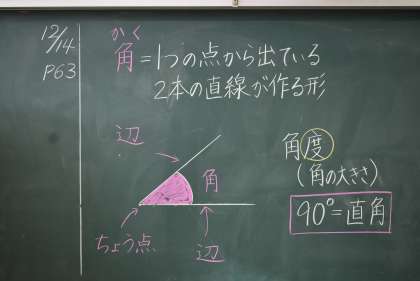 12/14
P63
かく
角=1つの点から出ている
2本の直線が作る形
辺
角
ちょう点
辺
角度
(角の大きさ)
90°=直角